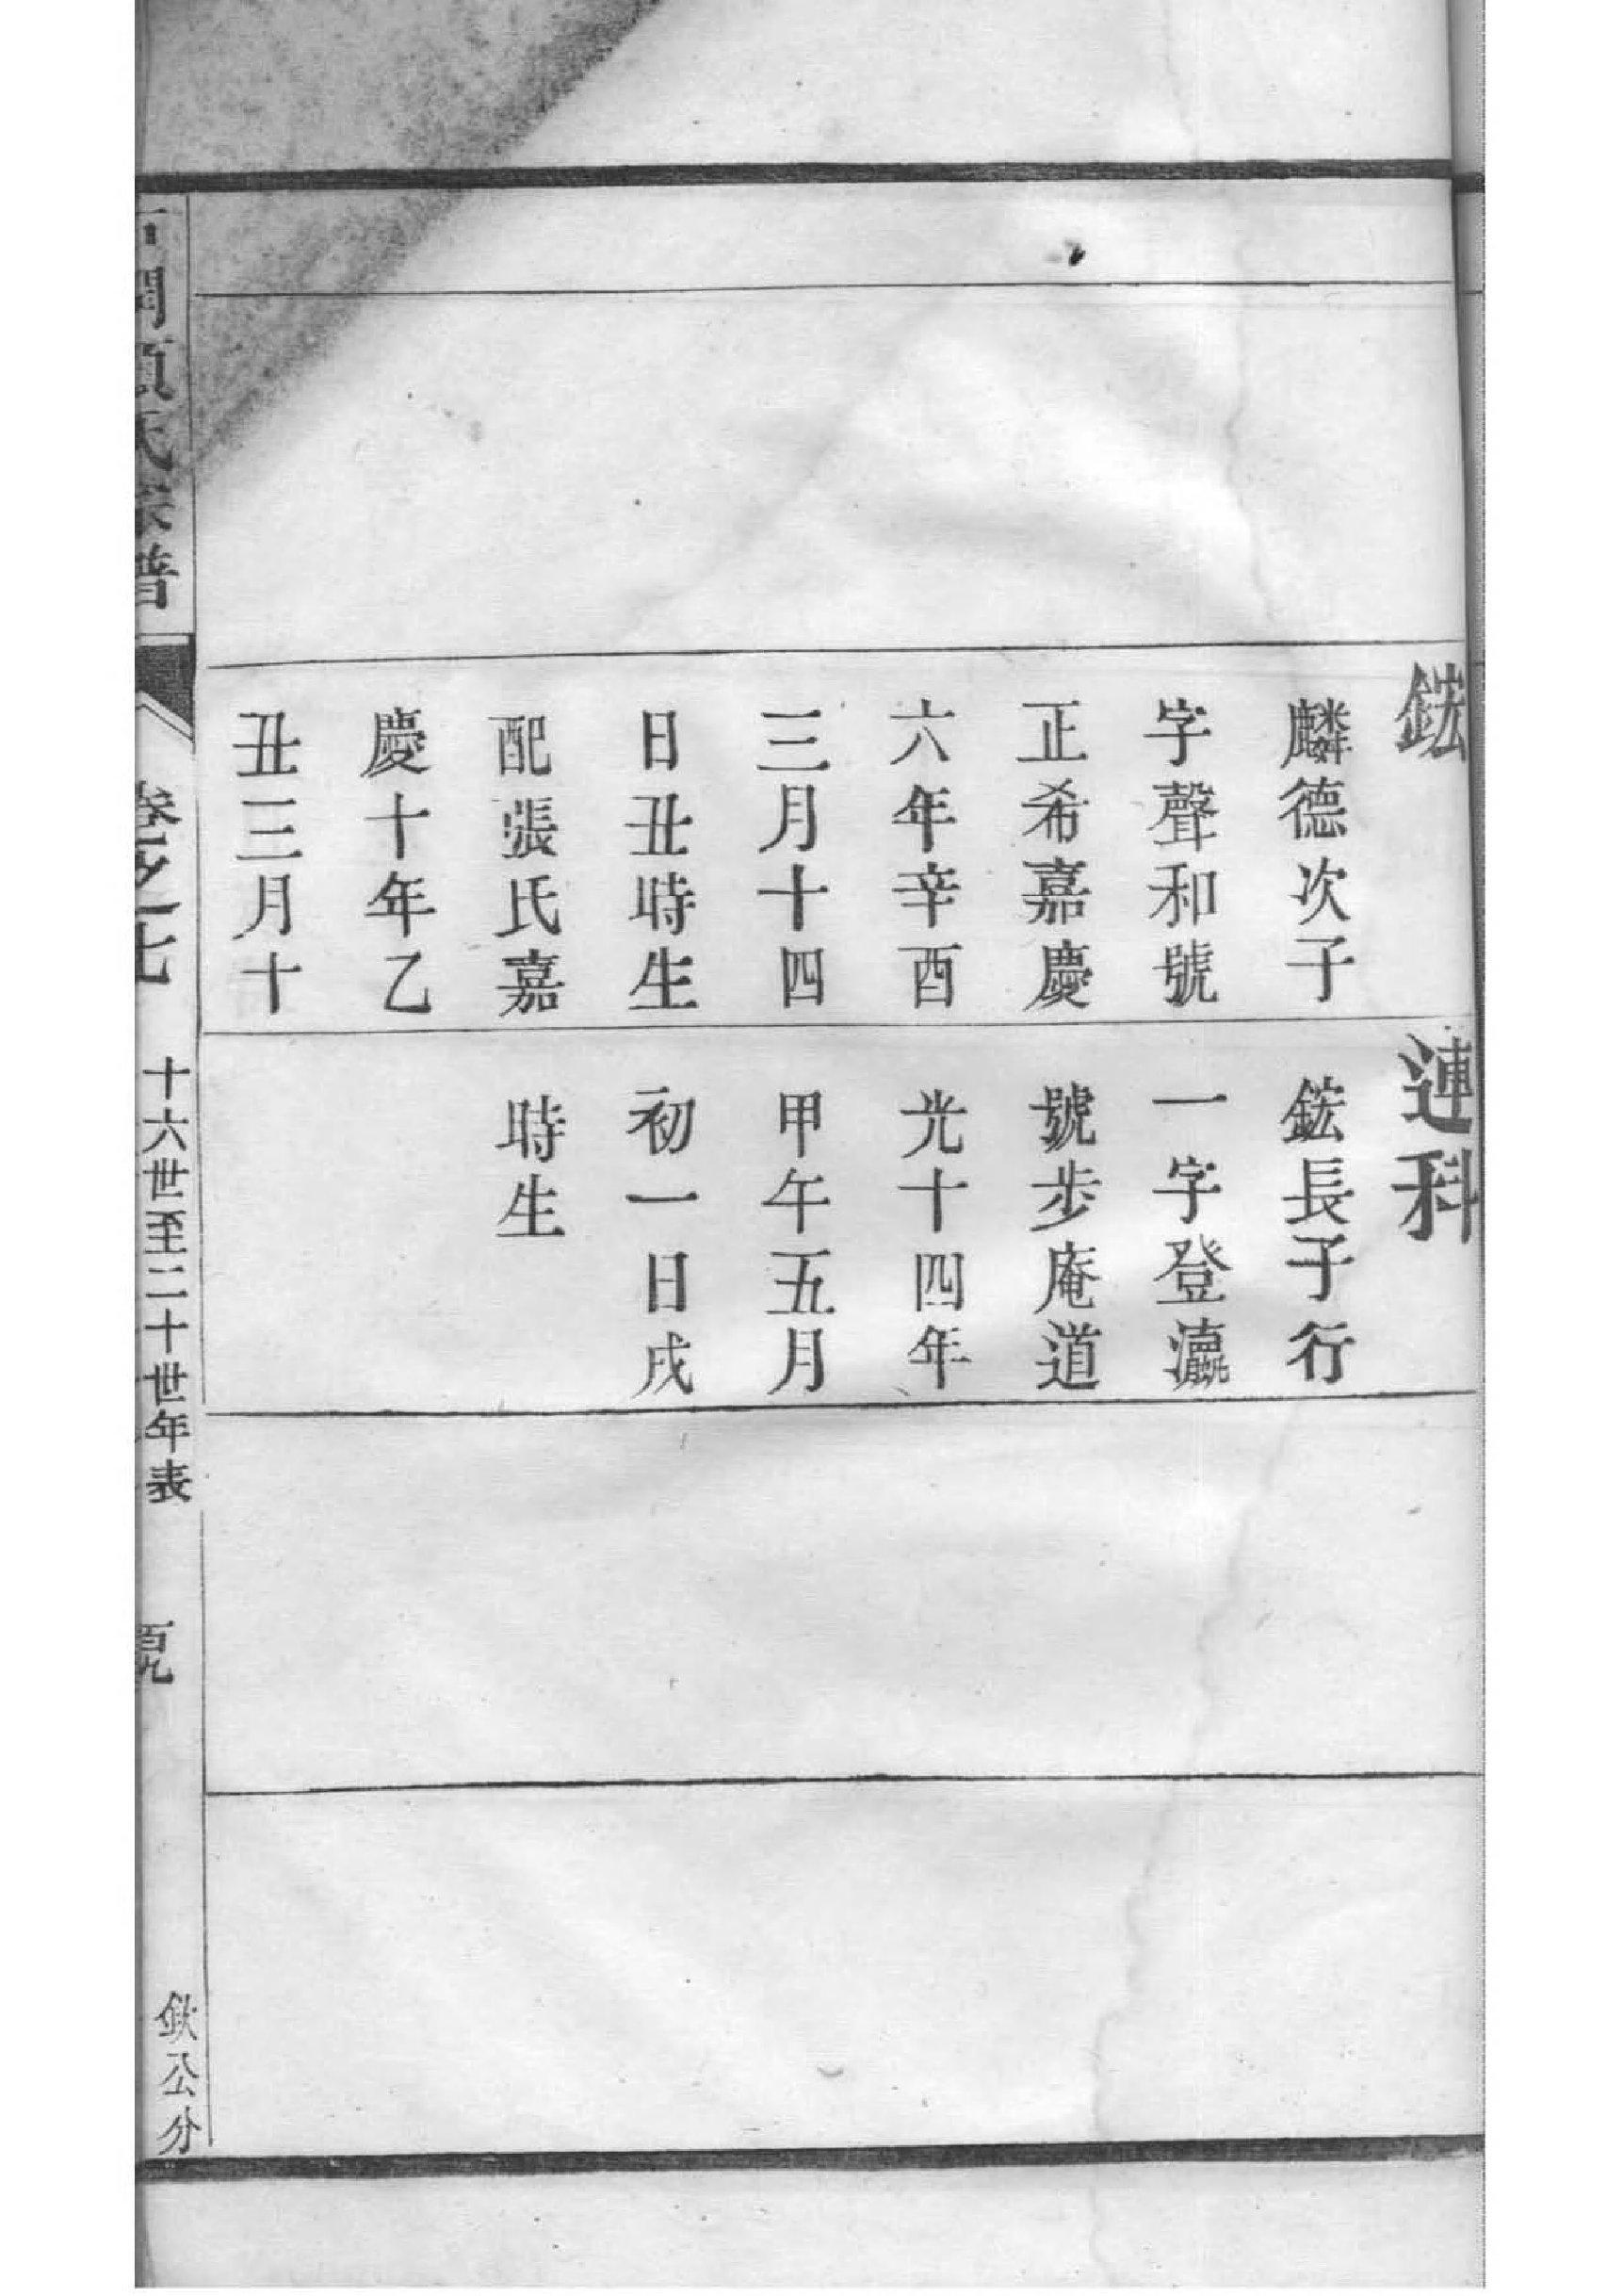 鋐
麟德次子
字聲和號
正希嘉慶
六年辛酉
三月十四
日丑時生
配張氏嘉
慶十年乙
丑三月十
連科
鋐長子行
一字登瀛
號步庵道
光十四年
甲午五月
初一日戌
時生
氏宗譜
卷之七
十六世至二十世年表
欽公分